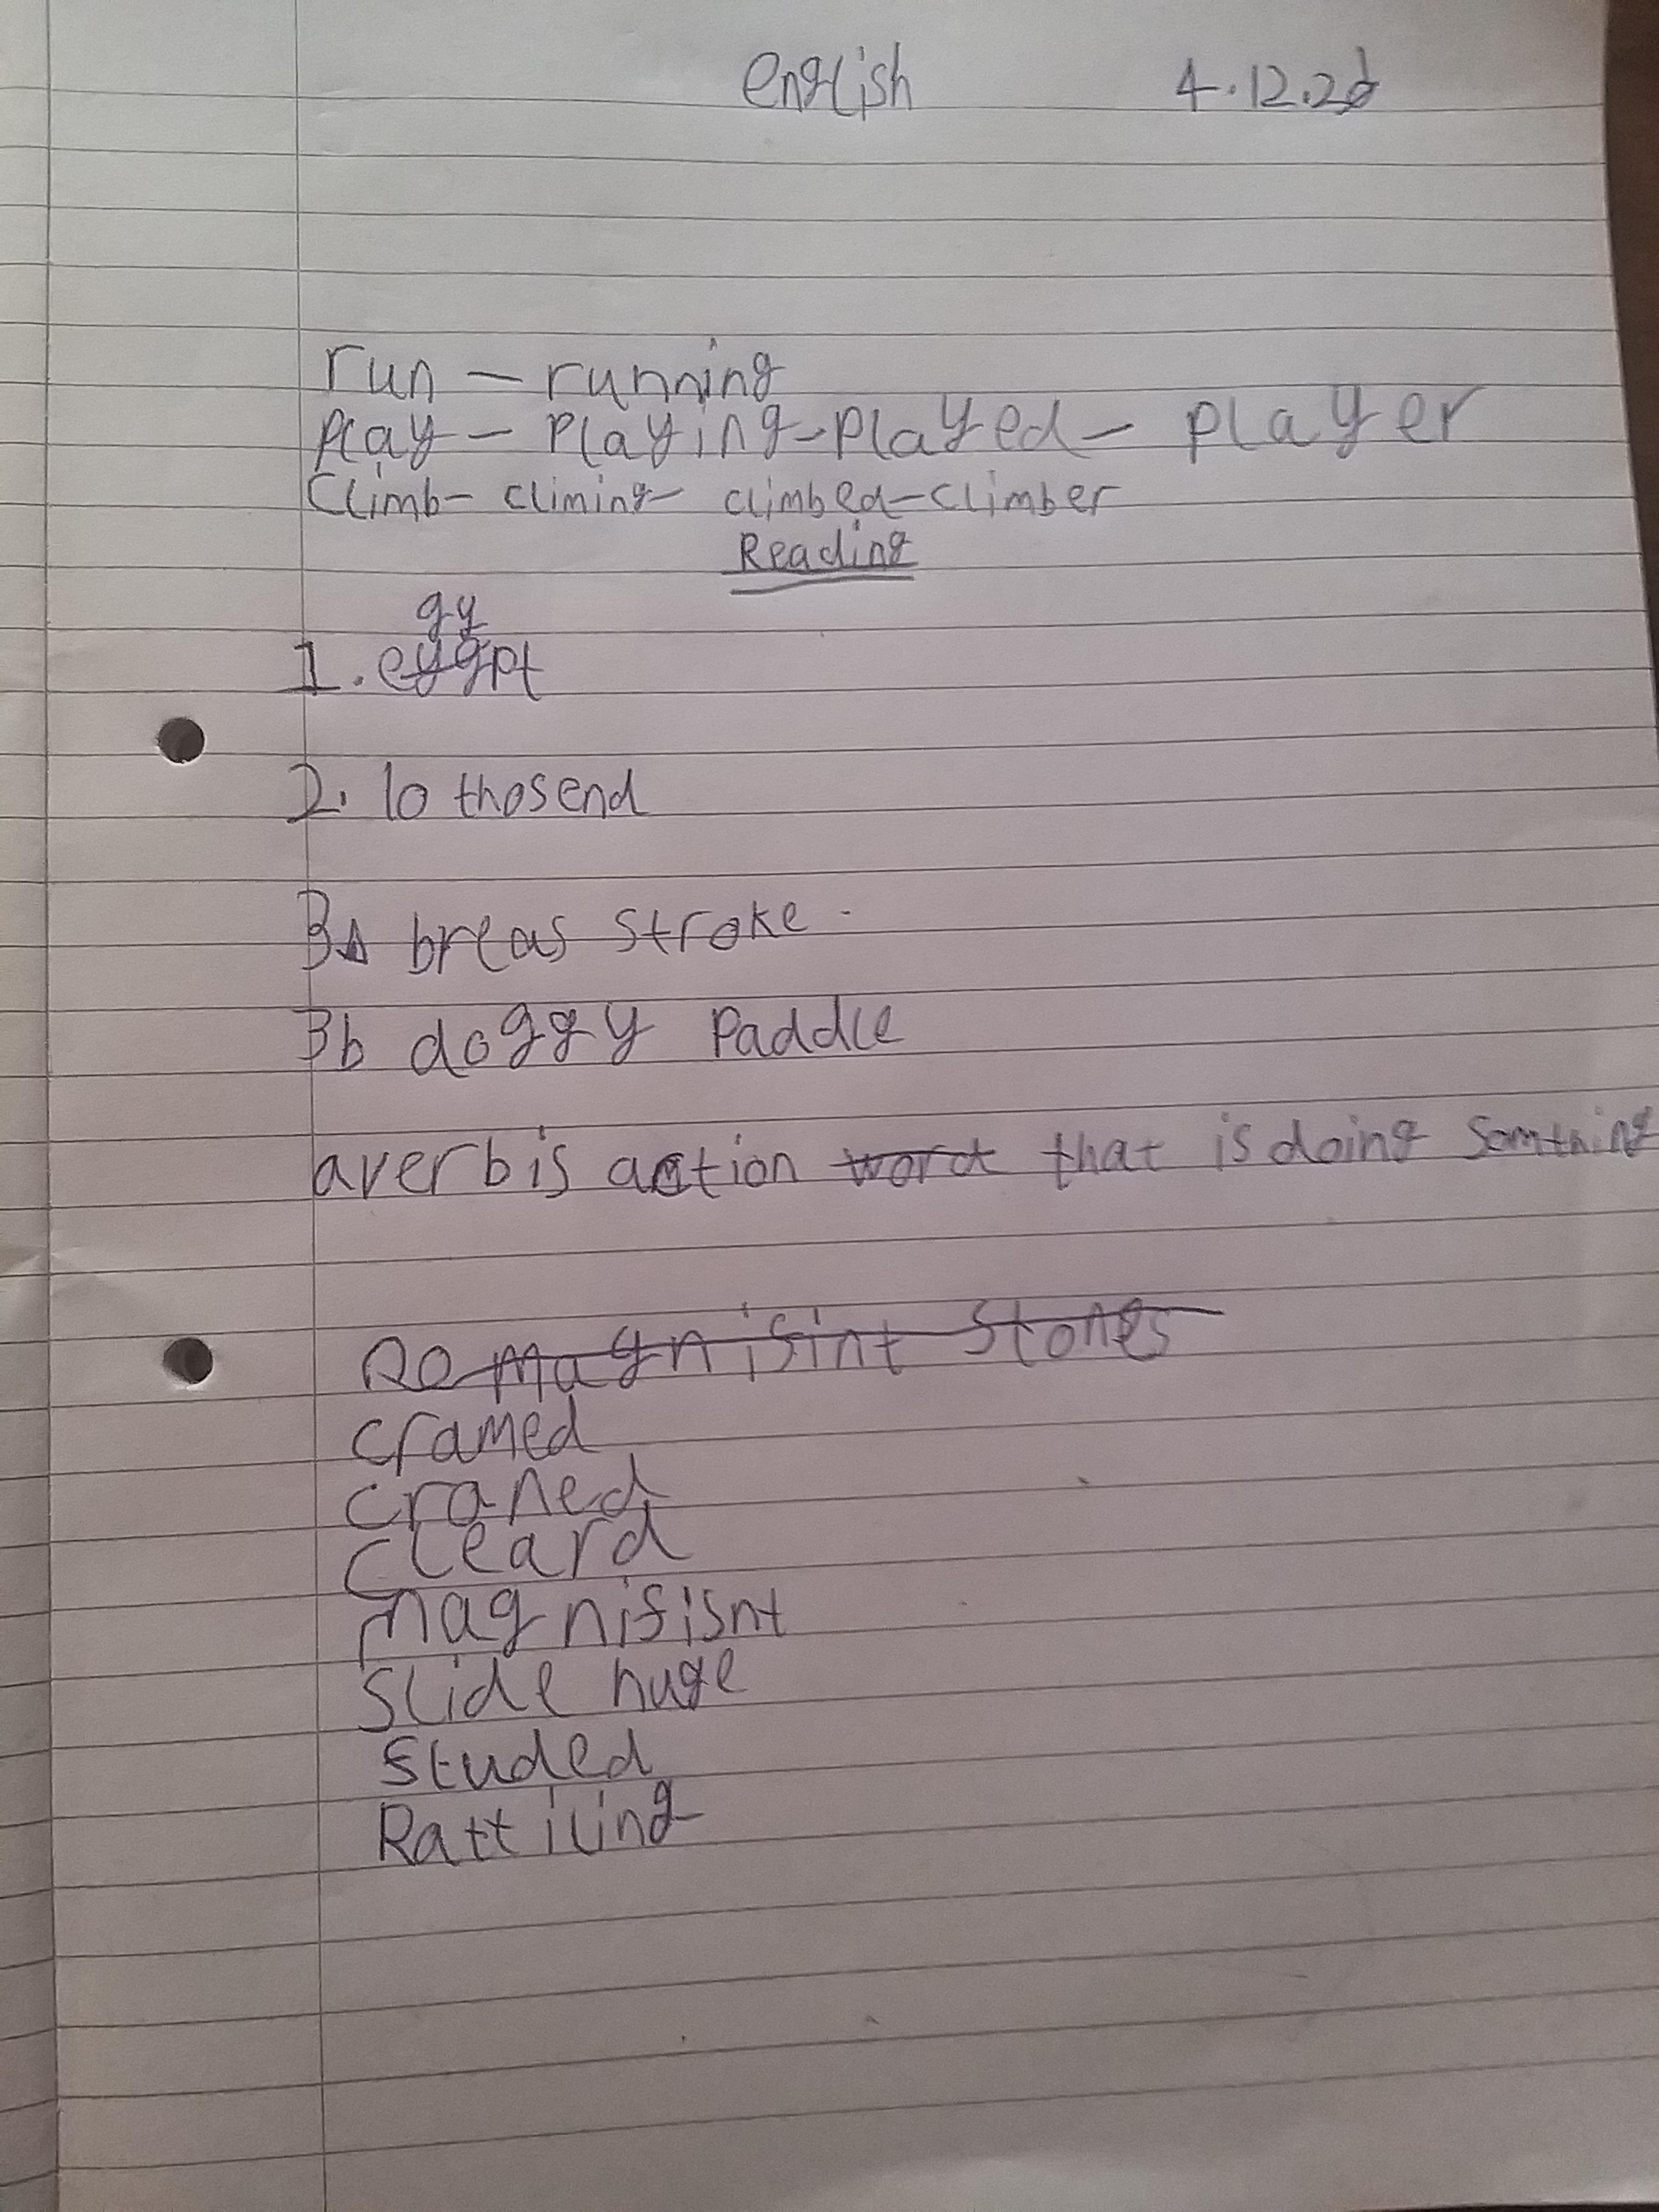 english 4.12.20
run - running
play - playing - played - player
climb - climing - climbed - climber
Reading
gy
1. eygpt
2. 10 thosend
3A breas stroke.
3b doggy Paddle
a verb is action word that is doing somthing
Re magnifisint stones
cramed
craned
cleard
magnifisnt
slide huge
studed
Rattiling